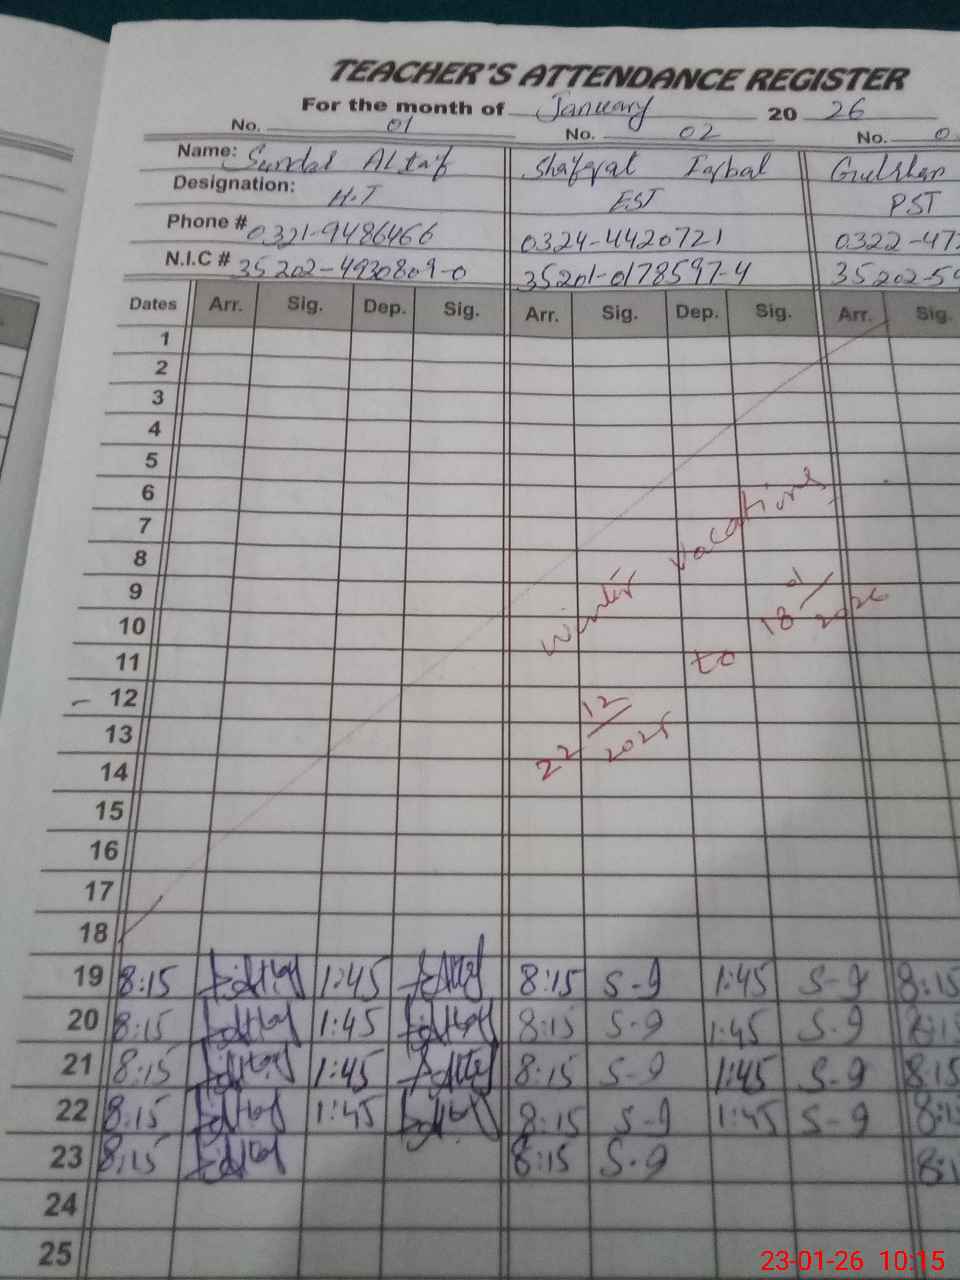 TEACHER'S ATTENDANCE REGISTER
For the month of January 20 26
No. 01 No. 02 No.
Name: Sundas Altaf Shafqat Iqbal Gulshan
Designation: H.T EST PST
Phone # 0321-9486466 0324-4420721 0322-47
N.I.C # 35202-4930809-0 35201-0178597-4 35202-59
Dates Arr. Sig. Dep. Sig. Arr. Sig. Dep. Sig. Arr. Sig.
1
2
3
4
5
6
7
8
9
10
11
12
13
14
15
16
17
18
winter vacations
22 12/2025 to 18 01/2026
19 8:15 1:45 8:15 S-9 1:45 S-9 8:15
20 8:15 1:45 8:15 S-9 1:45 S-9 8:15
21 8:15 1:45 8:15 S-9 1:45 S-9 8:15
22 8:15 1:45 8:15 S-9 1:45 S-9 8:1
23 8:15 8:15 S-9 8:1
24
25
23-01-26 10:15